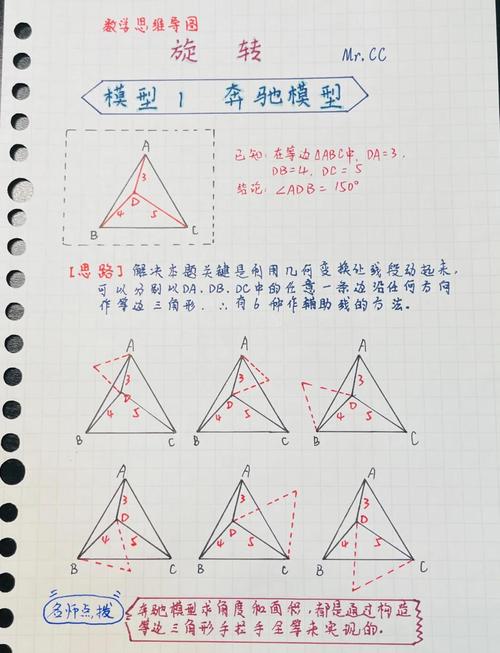 数学思维导图
旋 转
Mr.CC
模型1 奔驰模型
A
3
D
4 5
B C
已知:在等边△ABC中,DA=3,
DB=4,DC=5
结论:∠ADB=150°
【思路】解决本题关键是利用几何变换让线段动起来,
可以分别以DA.DB.DC中的任意一条边沿任何方向
作等边三角形.∴有6种作辅助线的方法。
A A A
3 3 3
D D D
4 5 4 5 4 5
B C B C B C
A A A
3 3 3
D D D
4 5 4 5 4 5
B C B C B C
名师点拨
奔驰模型求角度和面积,都是通过构造
等边三角形手拉手全等来实现的.